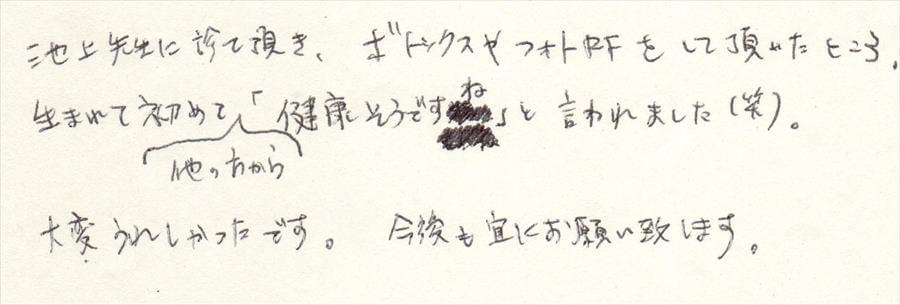 池上先生に診て頂き、ボトックスやフォトRFをして頂いたところ、
生まれて初めて「健康そうですね」と言われました(笑)。
他の方から
大変うれしかったです。 今後も宜にお願い致します。